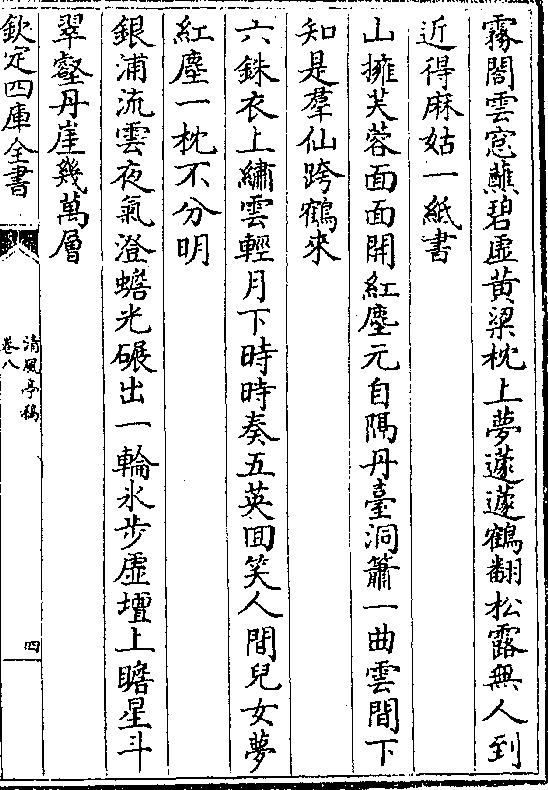 霧閣雲窓蘸碧虛黃粱枕上夢蘧蘧鶴翻松露無人到
近得麻姑一紙書
山擁芙蓉面面開紅塵元自隔丹臺洞簫一曲雲間下
知是羣仙跨鶴來
六銖衣上繡雲輕月下時時奏五英回笑人間兒女夢
紅塵一枕不分明
銀浦流雲夜氣澄蟾光碾出一輪氷步虛壇上瞻星斗
翠壑丹崖幾萬層
欽定四庫全書
清風亭稿
卷八
四